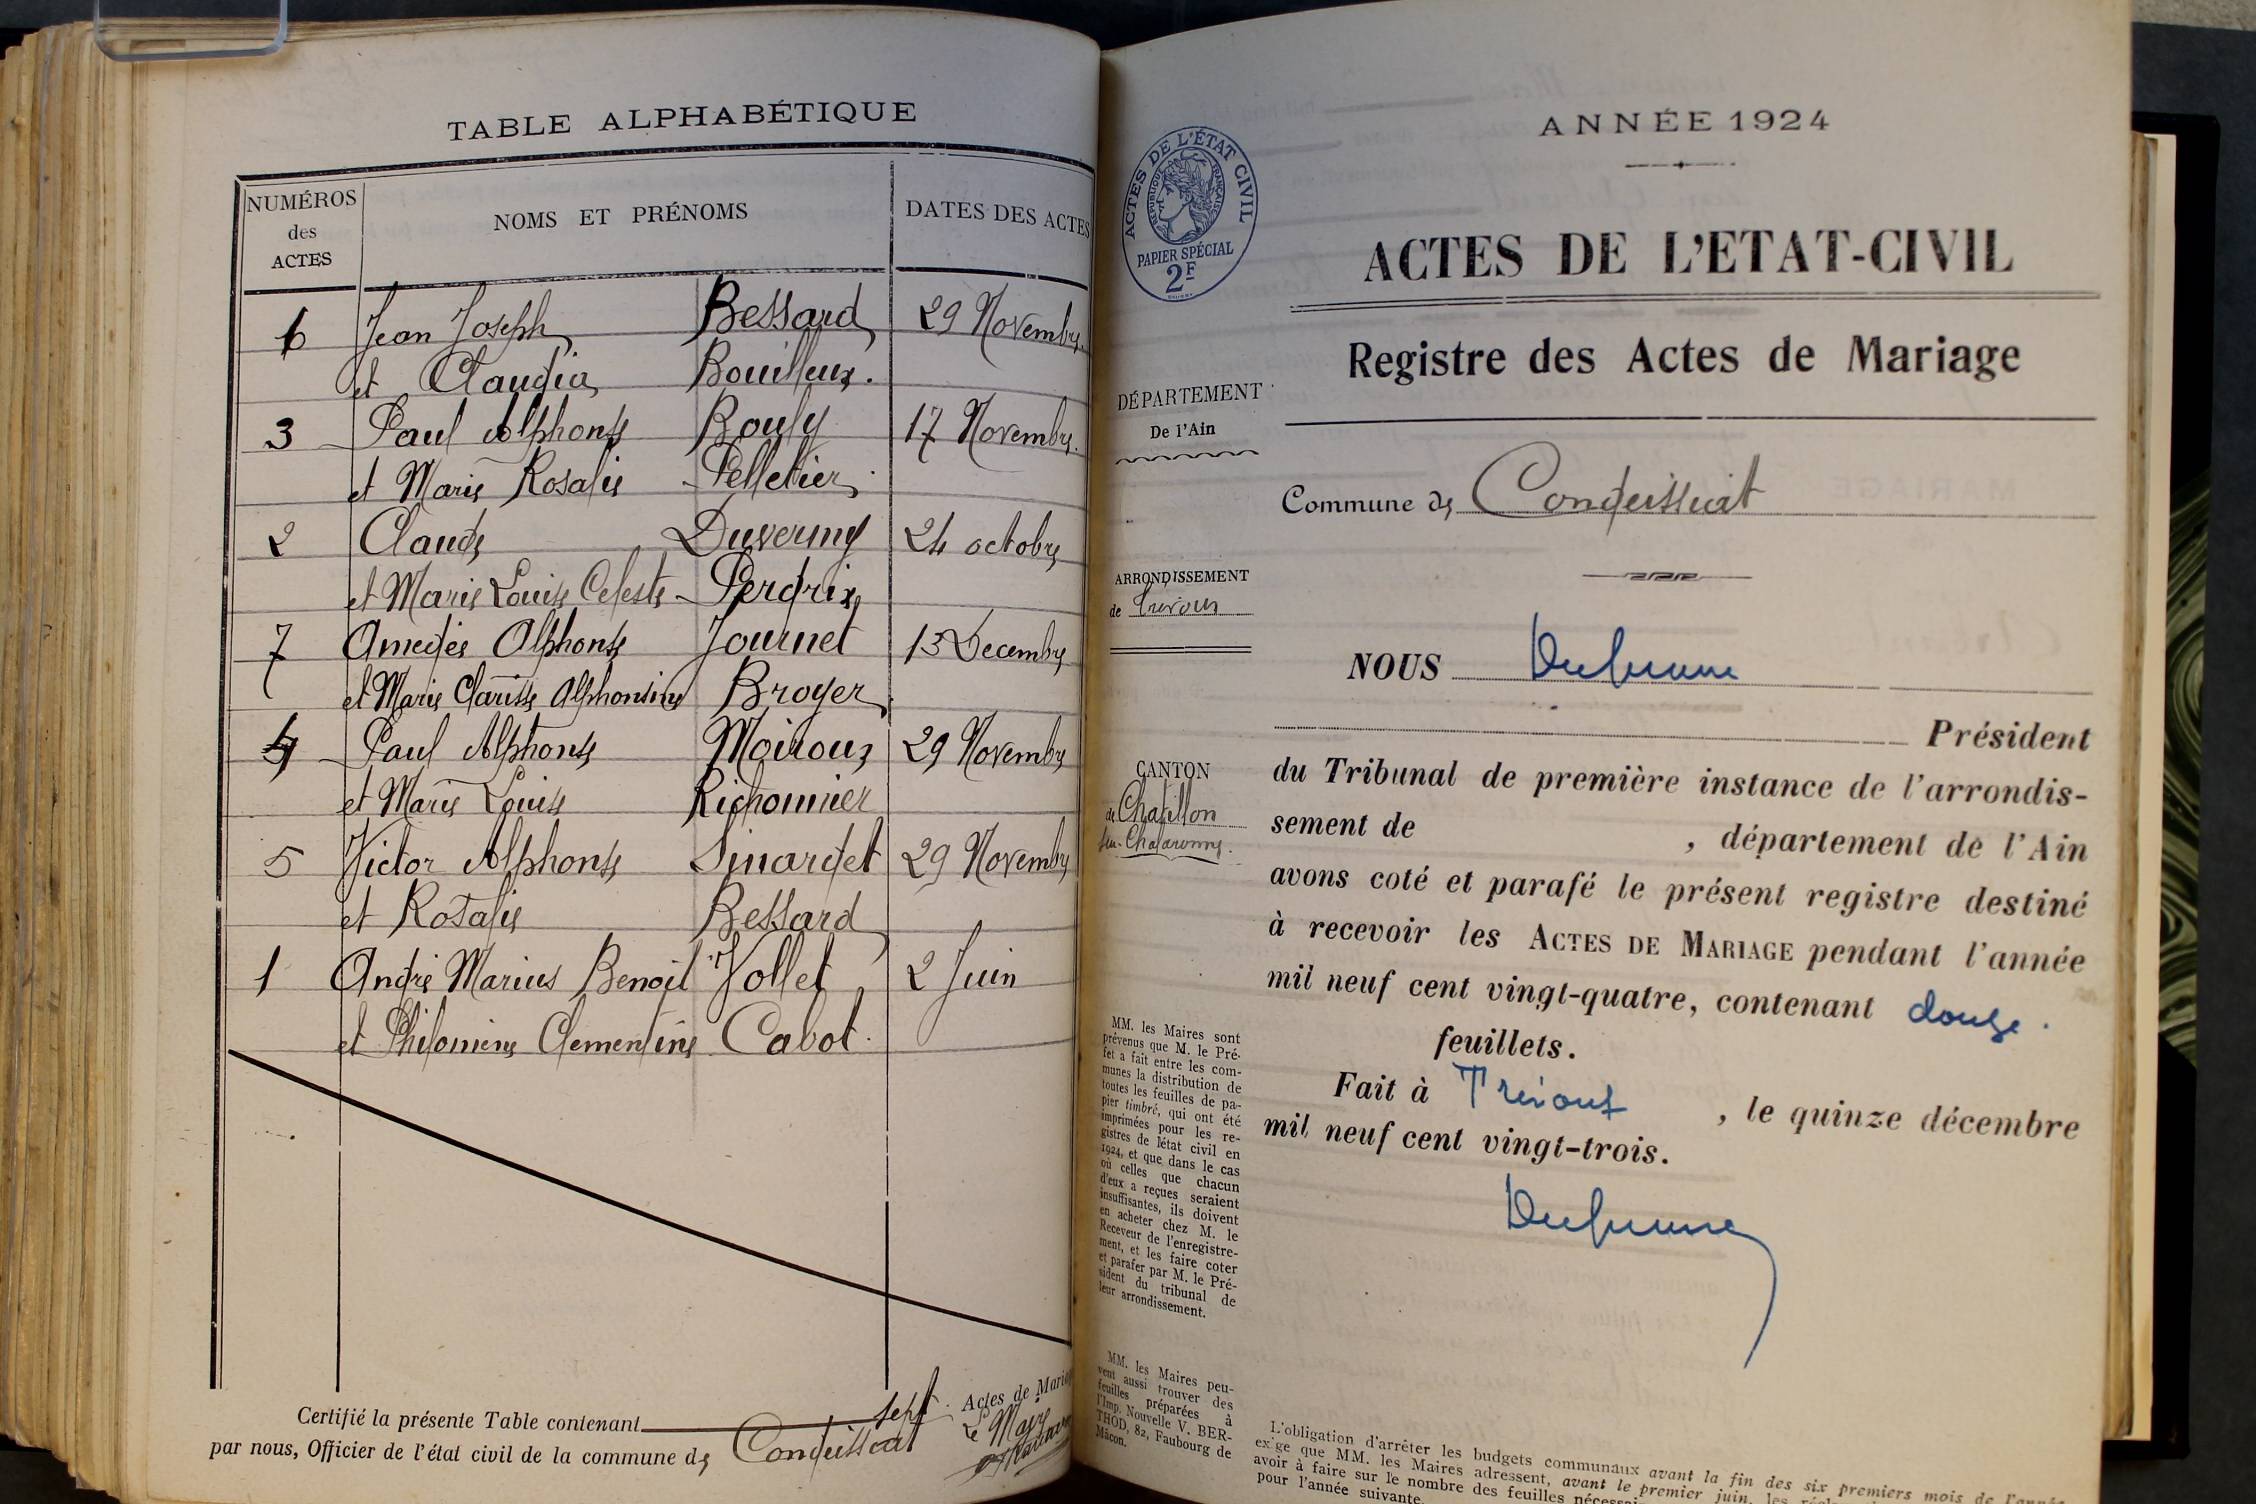 TABLE ALPHABÉTIQUE
NUMÉROS des ACTES NOMS ET PRÉNOMS DATES DES ACTES
6 Jean Joseph Bessard 29 Novembre
et Claudia Bouilleux.
3 Paul Alphonse Bouly 17 Novembre.
et Marie Rosalie Pelletier
2 Claude Duverny 24 octobre
et Marie Louise Celeste Perdrix
7 Amedée Alphonse Journet 13 Decembre
et Marie Clarisse Alphonsine Broyer
4 Paul Alphonse Moiroux 29 Novembre
et Marie Louise Richonnier
5 Victor Alphonse Sinardet 29 Novembre
et Rosalie Bessard
1 André Marius Benoît Vollet 2 Juin
et Philomène Clementine Cabot.
Certifié la présente Table contenant sept Actes de Mariage
par nous, Officier de l'état civil de la commune de Condeissiat Le Maire
ANNÉE 1924
ACTES DE L'ÉTAT CIVIL
RÉPUBLIQUE FRANÇAISE
PAPIER SPÉCIAL
2F
ACTES DE L'ETAT-CIVIL
Registre des Actes de Mariage
DÉPARTEMENT
De l'Ain
Commune de Condeissiat
ARRONDISSEMENT
de Trévoux
NOUS
Président
CANTON
de Chatillon
sur-Chalaronne.
du Tribunal de première instance de l'arrondis-
sement de , département de l'Ain
avons coté et parafé le présent registre destiné
à recevoir les ACTES DE MARIAGE pendant l'année
mil neuf cent vingt-quatre, contenant douze.
feuillets.
Fait à Trévoux , le quinze décembre
mil neuf cent vingt-trois.
MM. les Maires sont
prévenus que M. le Pré-
fet a fait entre les com-
munes la distribution de
toutes les feuilles de pa-
pier timbré, qui ont été
imprimées pour les re-
gistres de l'état civil en
1924, et que dans le cas
où celles que chacun
d'eux a reçues seraient
insuffisantes, ils doivent
en acheter chez M. le
Receveur de l'enregistre-
ment, et les faire coter
et parafer par M. le Pré-
sident du tribunal de
leur arrondissement.
MM. les Maires peu-
vent aussi trouver des
feuilles préparées à
l'Imp. Nouvelle V. BER-
THOD, 82, Faubourg de
Mâcon.
L'obligation d'arrêter les budgets communaux avant la fin des six premiers mois de l'année
exige que MM. les Maires adressent, avant le premier juin, les
avoir à faire sur le nombre des feuilles
pour l'année suivante.